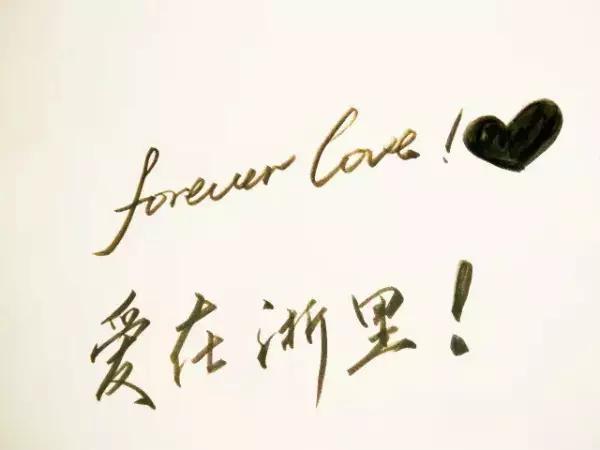 forever love!
爱在浙里!